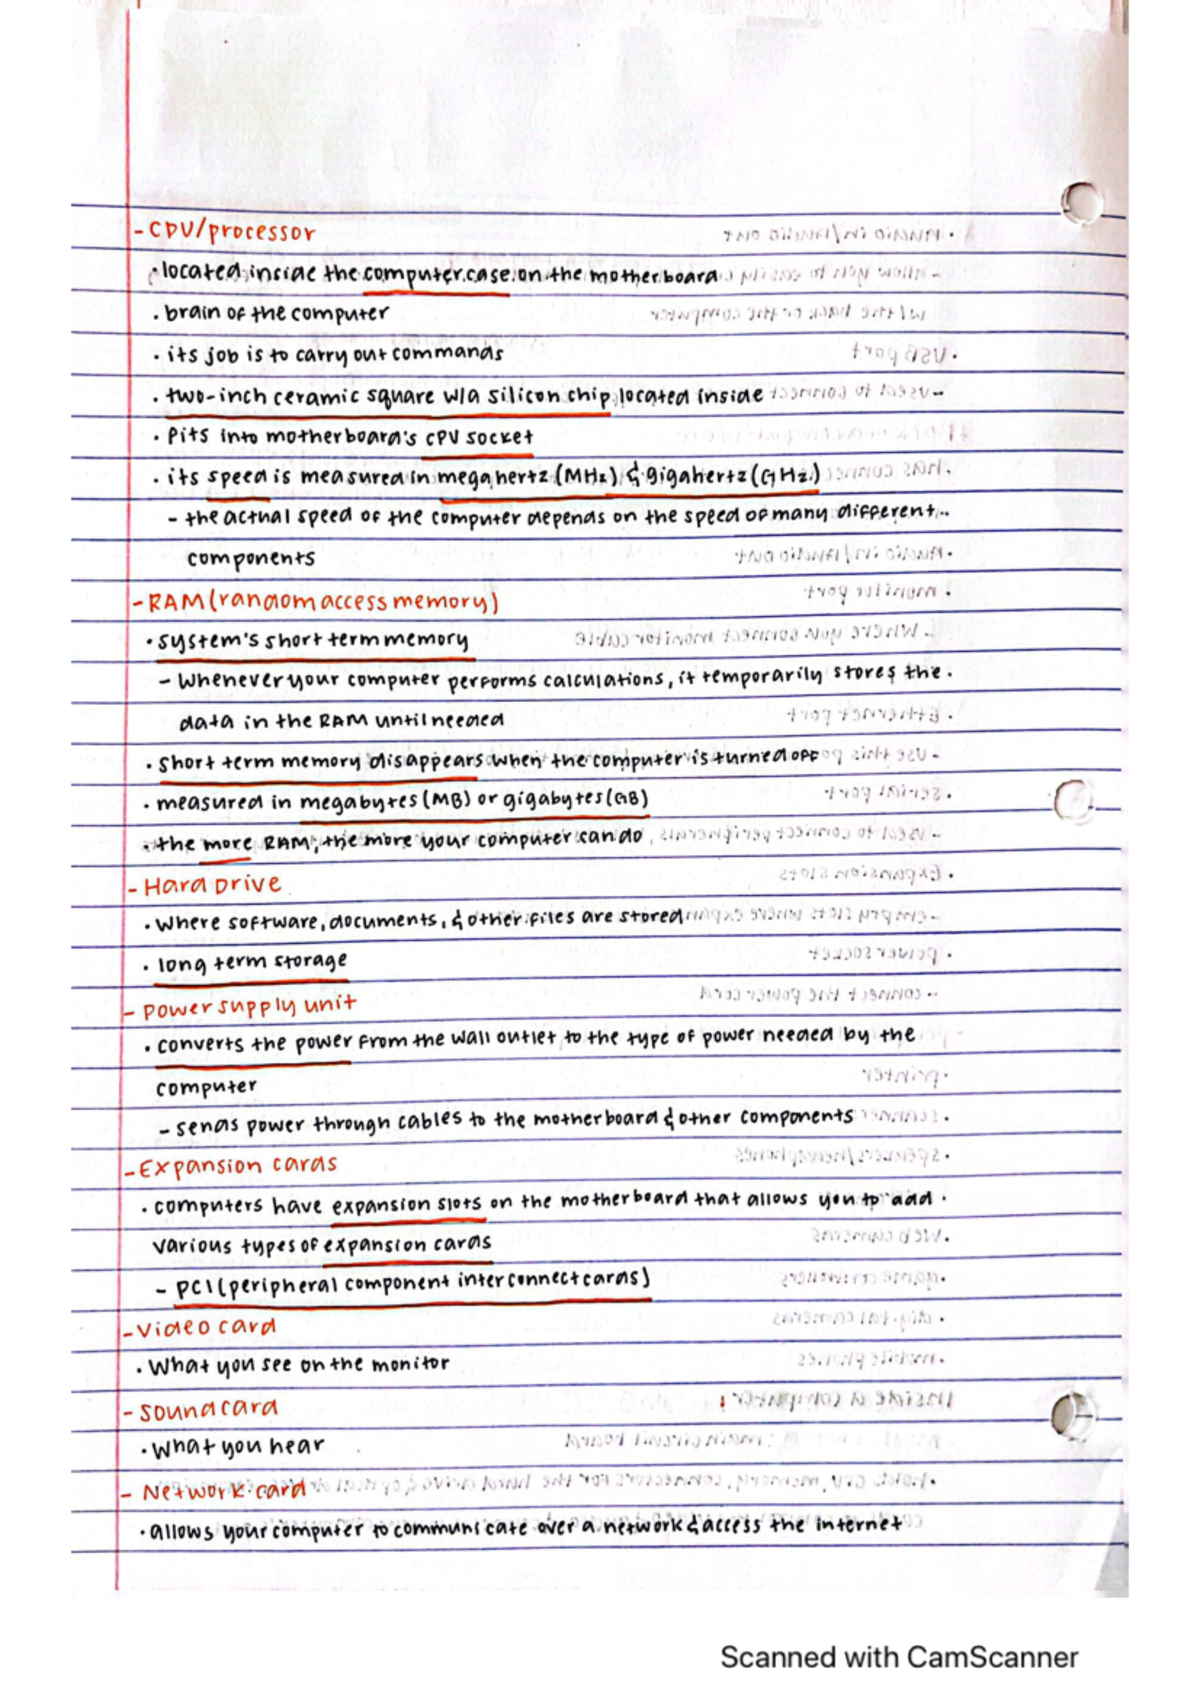 - CPU/processor
· located inside the computer case on the motherboard
· brain of the computer
· its job is to carry out commands
· two-inch ceramic square w/a silicon chip located inside
· Fits into motherboard's CPU socket
· its speed is measured in megahertz (MHz) & gigahertz (GHz)
- the actual speed of the computer depends on the speed of many different
components
- RAM (random access memory)
· system's short term memory
- whenever your computer performs calculations, it temporarily stores the
data in the RAM until needed
· short term memory disappears when the computer is turned off
· measured in megabytes (MB) or gigabytes (GB)
· the more RAM, the more your computer can do
- Hard Drive
· where software, documents, & other files are stored
· long term storage
- power supply unit
· converts the power from the wall outlet to the type of power needed by the
computer
- sends power through cables to the motherboard & other components
- Expansion cards
· computers have expansion slots on the motherboard that allows you to add
various types of expansion cards
- PCI (peripheral component interconnect cards)
- video card
· What you see on the monitor
- sound card
· What you hear
- Network card
· allows your computer to communicate over a network & access the internet
Scanned with CamScanner